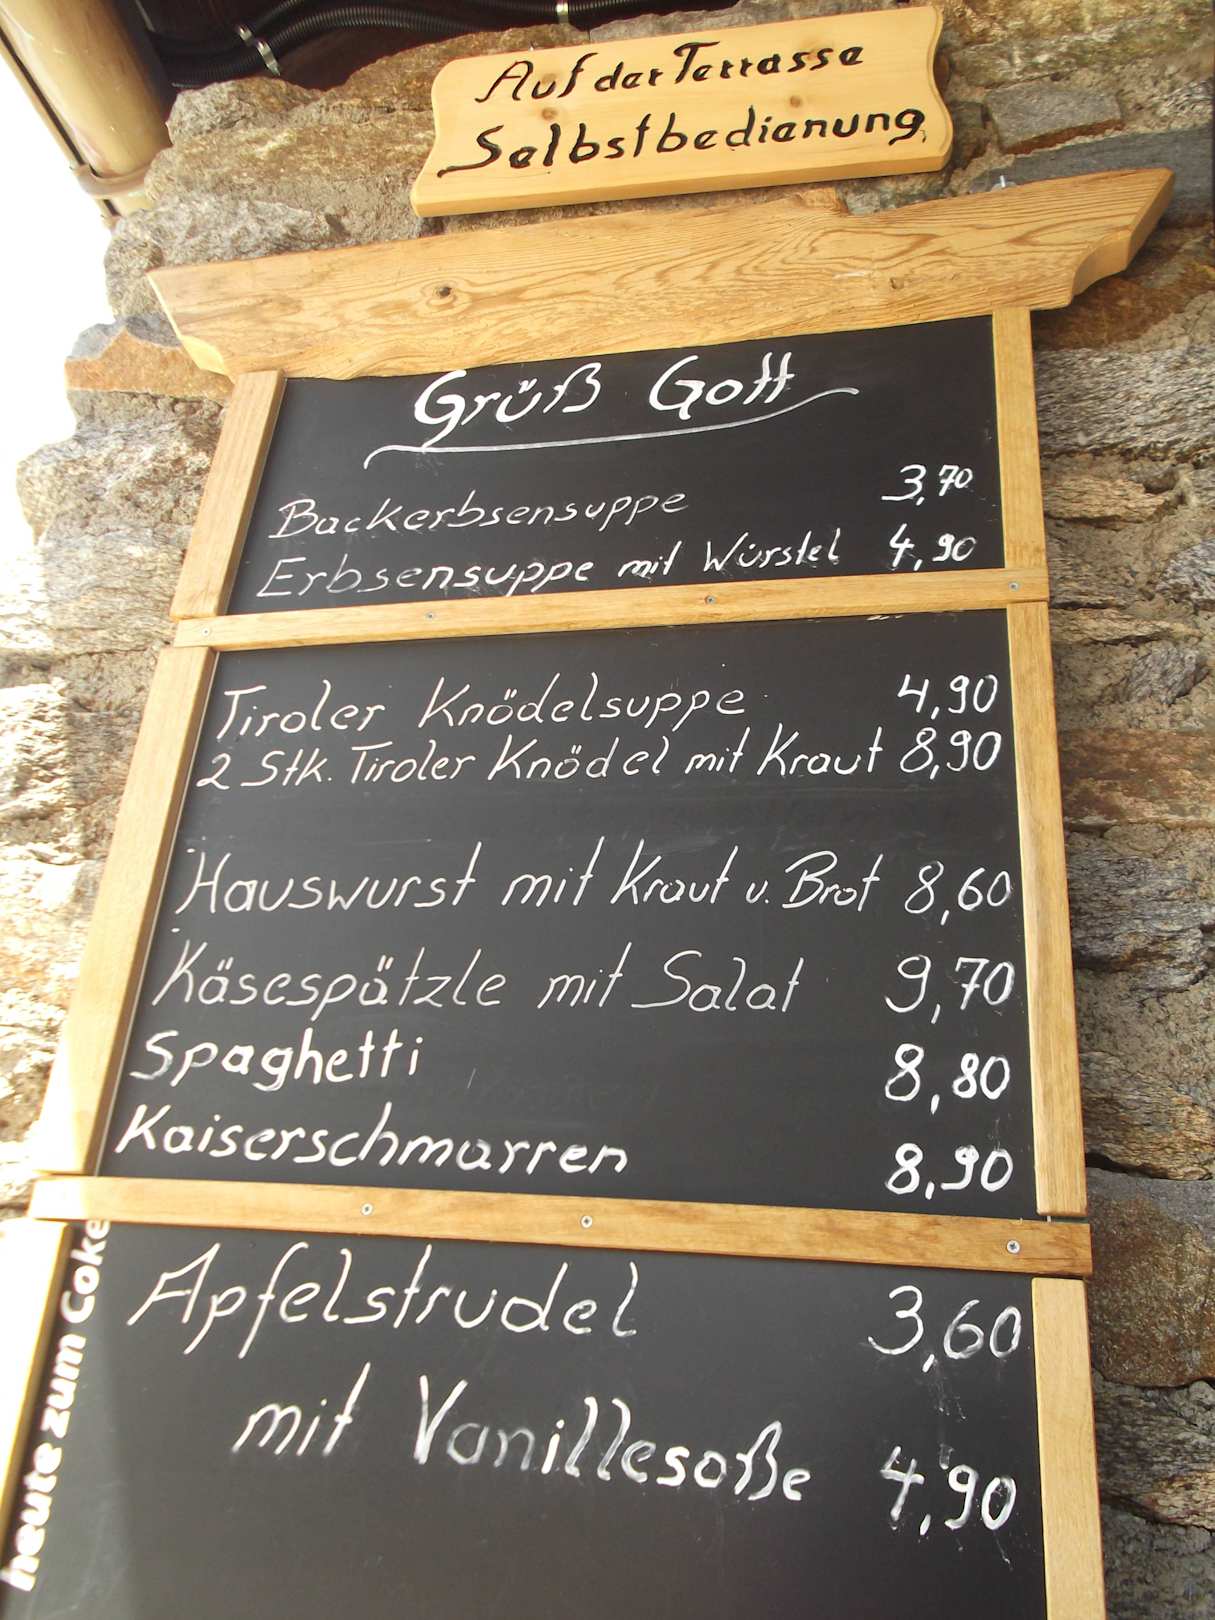 Auf der Terrasse
Selbstbedienung
Grüß Gott
Backerbsensuppe 3,70
Erbsensuppe mit Würstel 4,90
Tiroler Knödelsuppe 4,90
2 Stk. Tiroler Knödel mit Kraut 8,90
Hauswurst mit Kraut u. Brot 8,60
Käsespätzle mit Salat 9,70
Spaghetti 8,80
Kaiserschmarren 8,90
Apfelstrudel 3,60
mit Vanillesoße 4,90
heute zum Coke